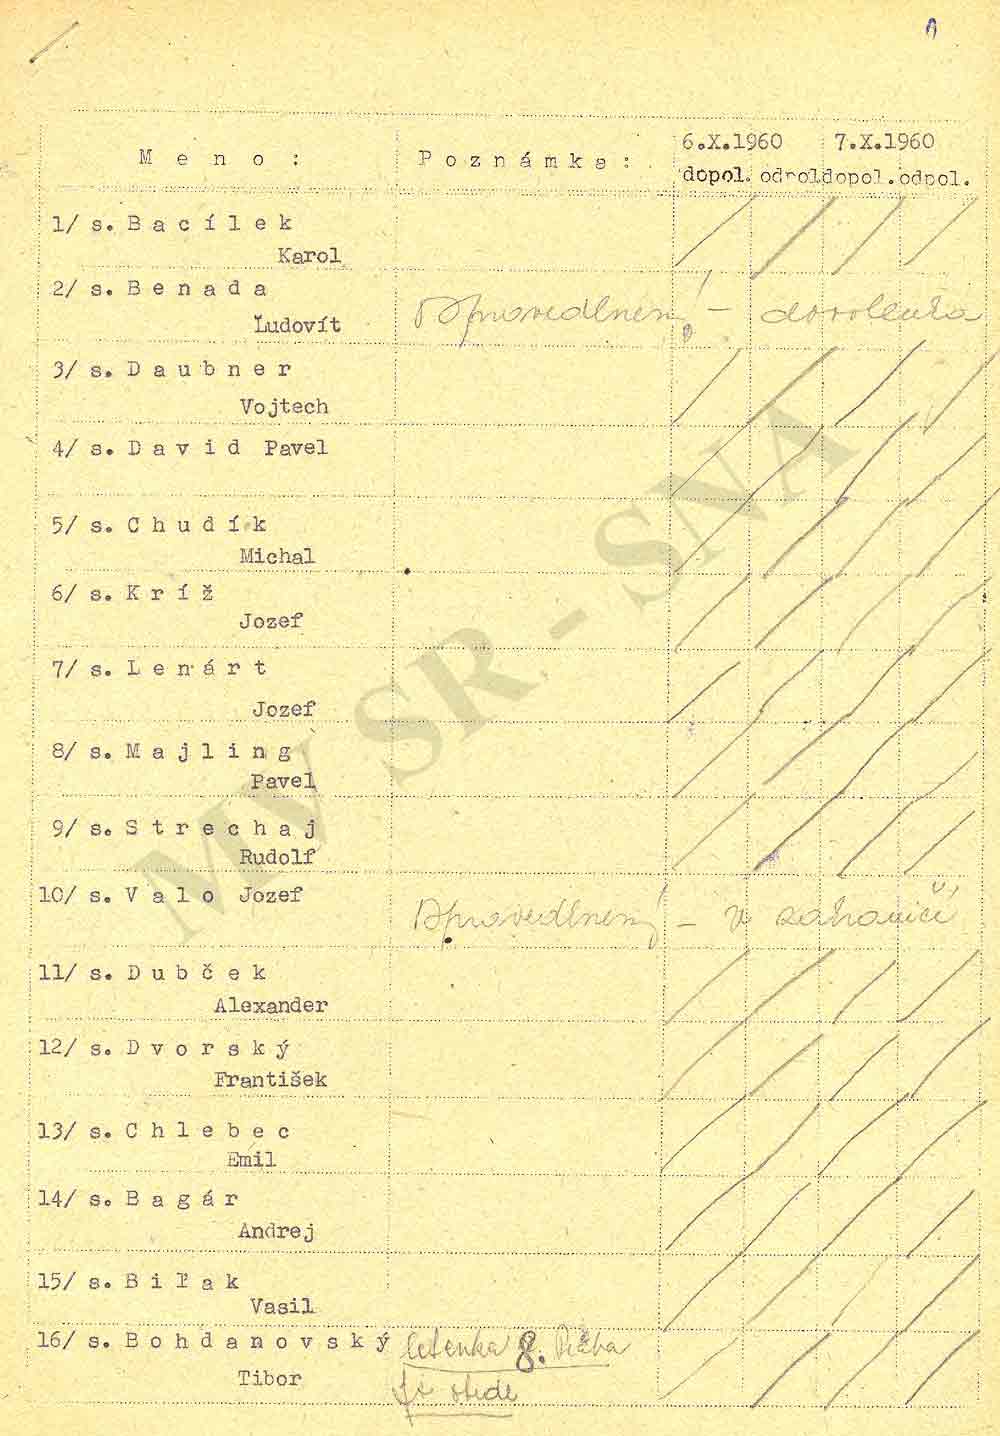 6.X.1960 7.X.1960
M e n o : P o z n á m k a :
dopol. odpol. dopol. odpol.
1/ s. B a c í l e k
Karol
2/ s. B e n a d a
Ľudovít Ospravedlnený - dovolenka
3/ s. D a u b n e r
Vojtech
4/ s. D a v i d Pavel
5/ s. C h u d í k
Michal
6/ s. K r í ž
Jozef
7/ s. L e n á r t
Jozef
8/ s. M a j l i n g
Pavel
9/ s. S t r e c h a j
Rudolf
10/ s. V a l o Jozef
Ospravedlnený - v zahraničí
11/ s. D u b č e k
Alexander
12/ s. D v o r s k ý
František
13/ s. C h l e b e c
Emil
14/ s. B a g á r
Andrej
15/ s. B i ľ a k
Vasil
16/ s. B o h d a n o v s k ý letenka 8.
Tibor
MV SR - SNA